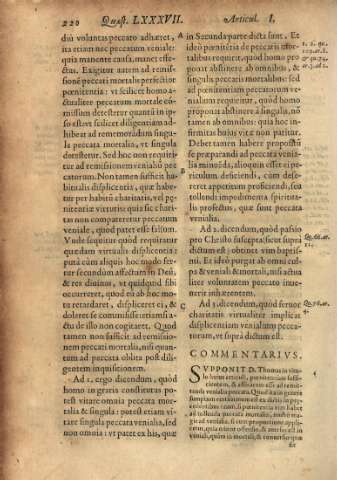 220 Quæst. LXXXVII. Articul. I.
diù voluntas peccato adhæret,
ita etiam nec peccatum veniale:
quia manente causa, manet effe-
ctus. Exigitur autem ad remissio-
nem peccati mortalis perfectior
pœnitentia: vt scilicet homo a-
ctualiter peccatum mortale cõ-
missum detestetur quantũ in ip-
so est. vt scilicet diligentiam ad-
hibeat ad rememorandum singu-
la peccata mortalia, vt singula
detestetur. Sed hoc non requiri-
tur ad remissionem venialiũ pec-
catorum. Non tamen sufficit ha-
bitualis displicentia, quæ habe-
tur per habitũ charitatis, vel pœ-
nitentiæ virtutis: quia sic chari-
tas non compateretur peccatum
veniale, quod patet esse falsum.
Vnde sequitur quòd requiratur
quædam virtualis displicentia:
putà cùm aliquis hoc modo fer-
tur secundùm affectum in Deũ,
& res diuinas, vt quidquid sibi
occurreret, quod eũ ab hoc mo-
tu retardaret, displiceret ei, &
doleret se commisisse: etiamsi a-
ctu de illo non cogitaret. Quod
tamen non sufficit ad remissio-
nem peccati mortalis, nisi quan-
tum ad peccata oblita post dili-
gentem inquisitionem.
Ad 1. ergo dicendum, quòd
homo in gratia constitutus po-
test vitare omnia peccata mor-
talia & singula: potest etiam vi-
tare singula peccata venialia, sed
non omnia: vt patet ex his, quæ
A
B
C
in Secunda parte dicta sunt. Et
ideò pœnitētia de peccatis mor-
talibus requirit, quòd homo pro
ponat abstinere ab omnibus, &
singulis peccatis mortalibus: sed
ad pœnitentiam peccatorum ve-
nialium requiritur, quòd homo
proponat abstinere à singulis, nõ
tamen ab omnibus: quia hoc in-
firmitas huius vitæ non patitur.
Debet tamen habere propositũ
se præparandi ad peccata venia-
lia minuẽda, alioquin esset ei pe-
riculum deficiendi, cum dese-
reret appetitum proficiendi, seu
tollendi impedimenta spiritua-
lis profectus, quæ sunt peccata
venialia.
Ad 2. dicendum, quòd passio
pro Christo suscepta, sicut suprà
dictum est, obtinet vim baptis-
mi. Et ideò purgat ab omni cul-
pa & veniali & mortali, nisi actua
liter voluntatem peccato inue-
nerit inhærentem.
Ad 3. dicendum, quòd feruor
charitatis virtualiter implicat
displicentiam venialium pecca-
torum, vt suprà dictum est.
COMMENTARIVS.
SVPPONIT D. Thomas in titu-